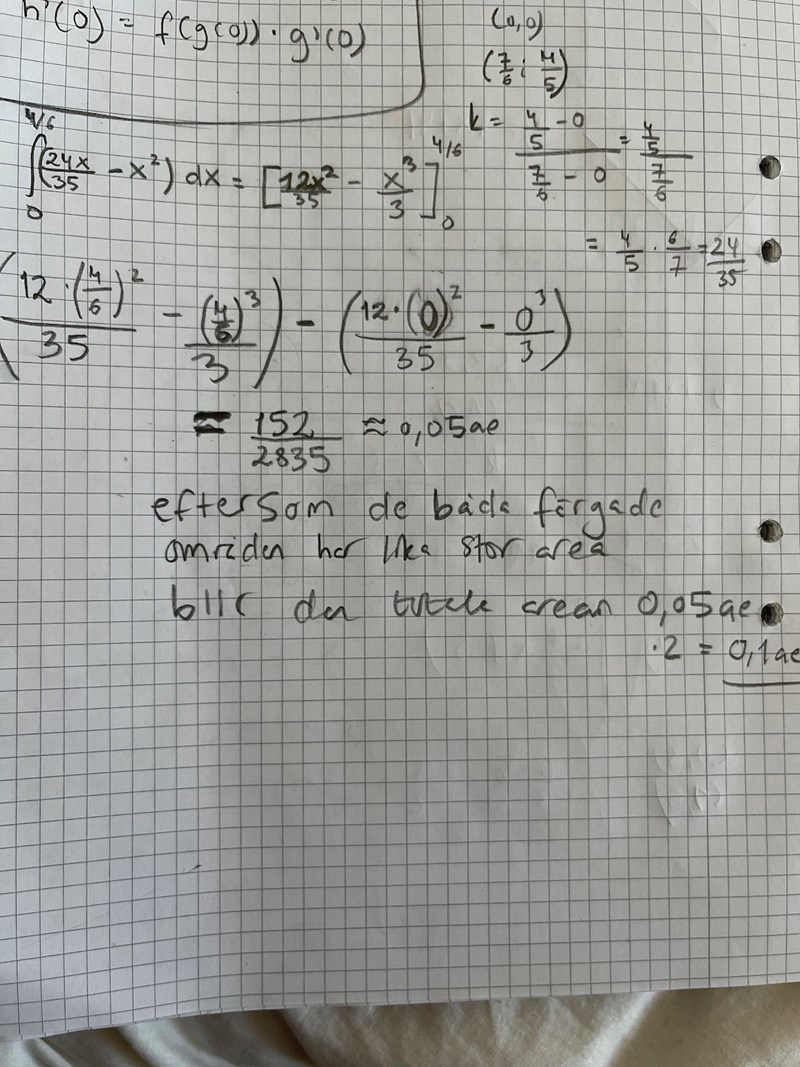 h'(0) = f(g(0)) · g'(0)
(0,0)
(7/6 ; 4/5)
k = (4/5 - 0)/(7/6 - 0) = (4/5)/(7/6)
= 4/5 · 6/7 = 24/35
∫₀^(4/6) (24x/35 - x²) dx = [12x²/35 - x³/3]₀^(4/6)
(12·(4/6)²/35 - (4/6)³/3) - (12·(0)²/35 - 0³/3)
= 152/2835 ≈ 0,05ae
eftersom de båda färgade
områden har lika stor area
blir den totala arean 0,05ae
·2 = 0,1ae